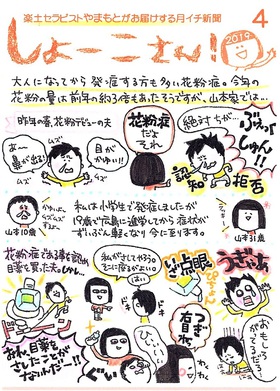 楽土セラピストやまもとがお届けする月イチ新聞
4
しょーこさん!
2019
大人になってから発症する方も多い花粉症。今年の
花粉の量は前年の約3倍もあったそうですが、山本家では…
昨年の春、花粉デビューの夫
あ〜
鼻が出る!
ムズ
ムズ
目が
かゆい!!
花粉症
だよ
それ
絶対ちが…
ぶぇっ
しゅん!!
認知拒否
山本10歳
かゆいよ〜
私は小学生で発症しましたが
19歳で広島に進学してから症状が
ずいぶん軽くなり今に至ります。
山本31歳
花粉症である事を認め
目薬を買った夫。しかし…
おれ、目薬を
さしたことが
ないんだー!!
私がさしてやろう。
そこに座るがよい。
ひぃぃ
ど点眼
うぎゃあ
つぎ
右目ね
わ
おもしろ
がってる
でしょ!